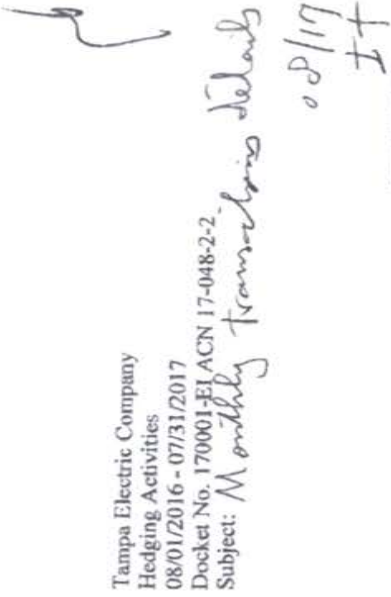 Tampa Electric Company
Hedging Activities
08/01/2016 - 07/31/2017
Docket No. 170001-EI ACN 17-048-2-2
Subject: Monthly transactions details
08/17